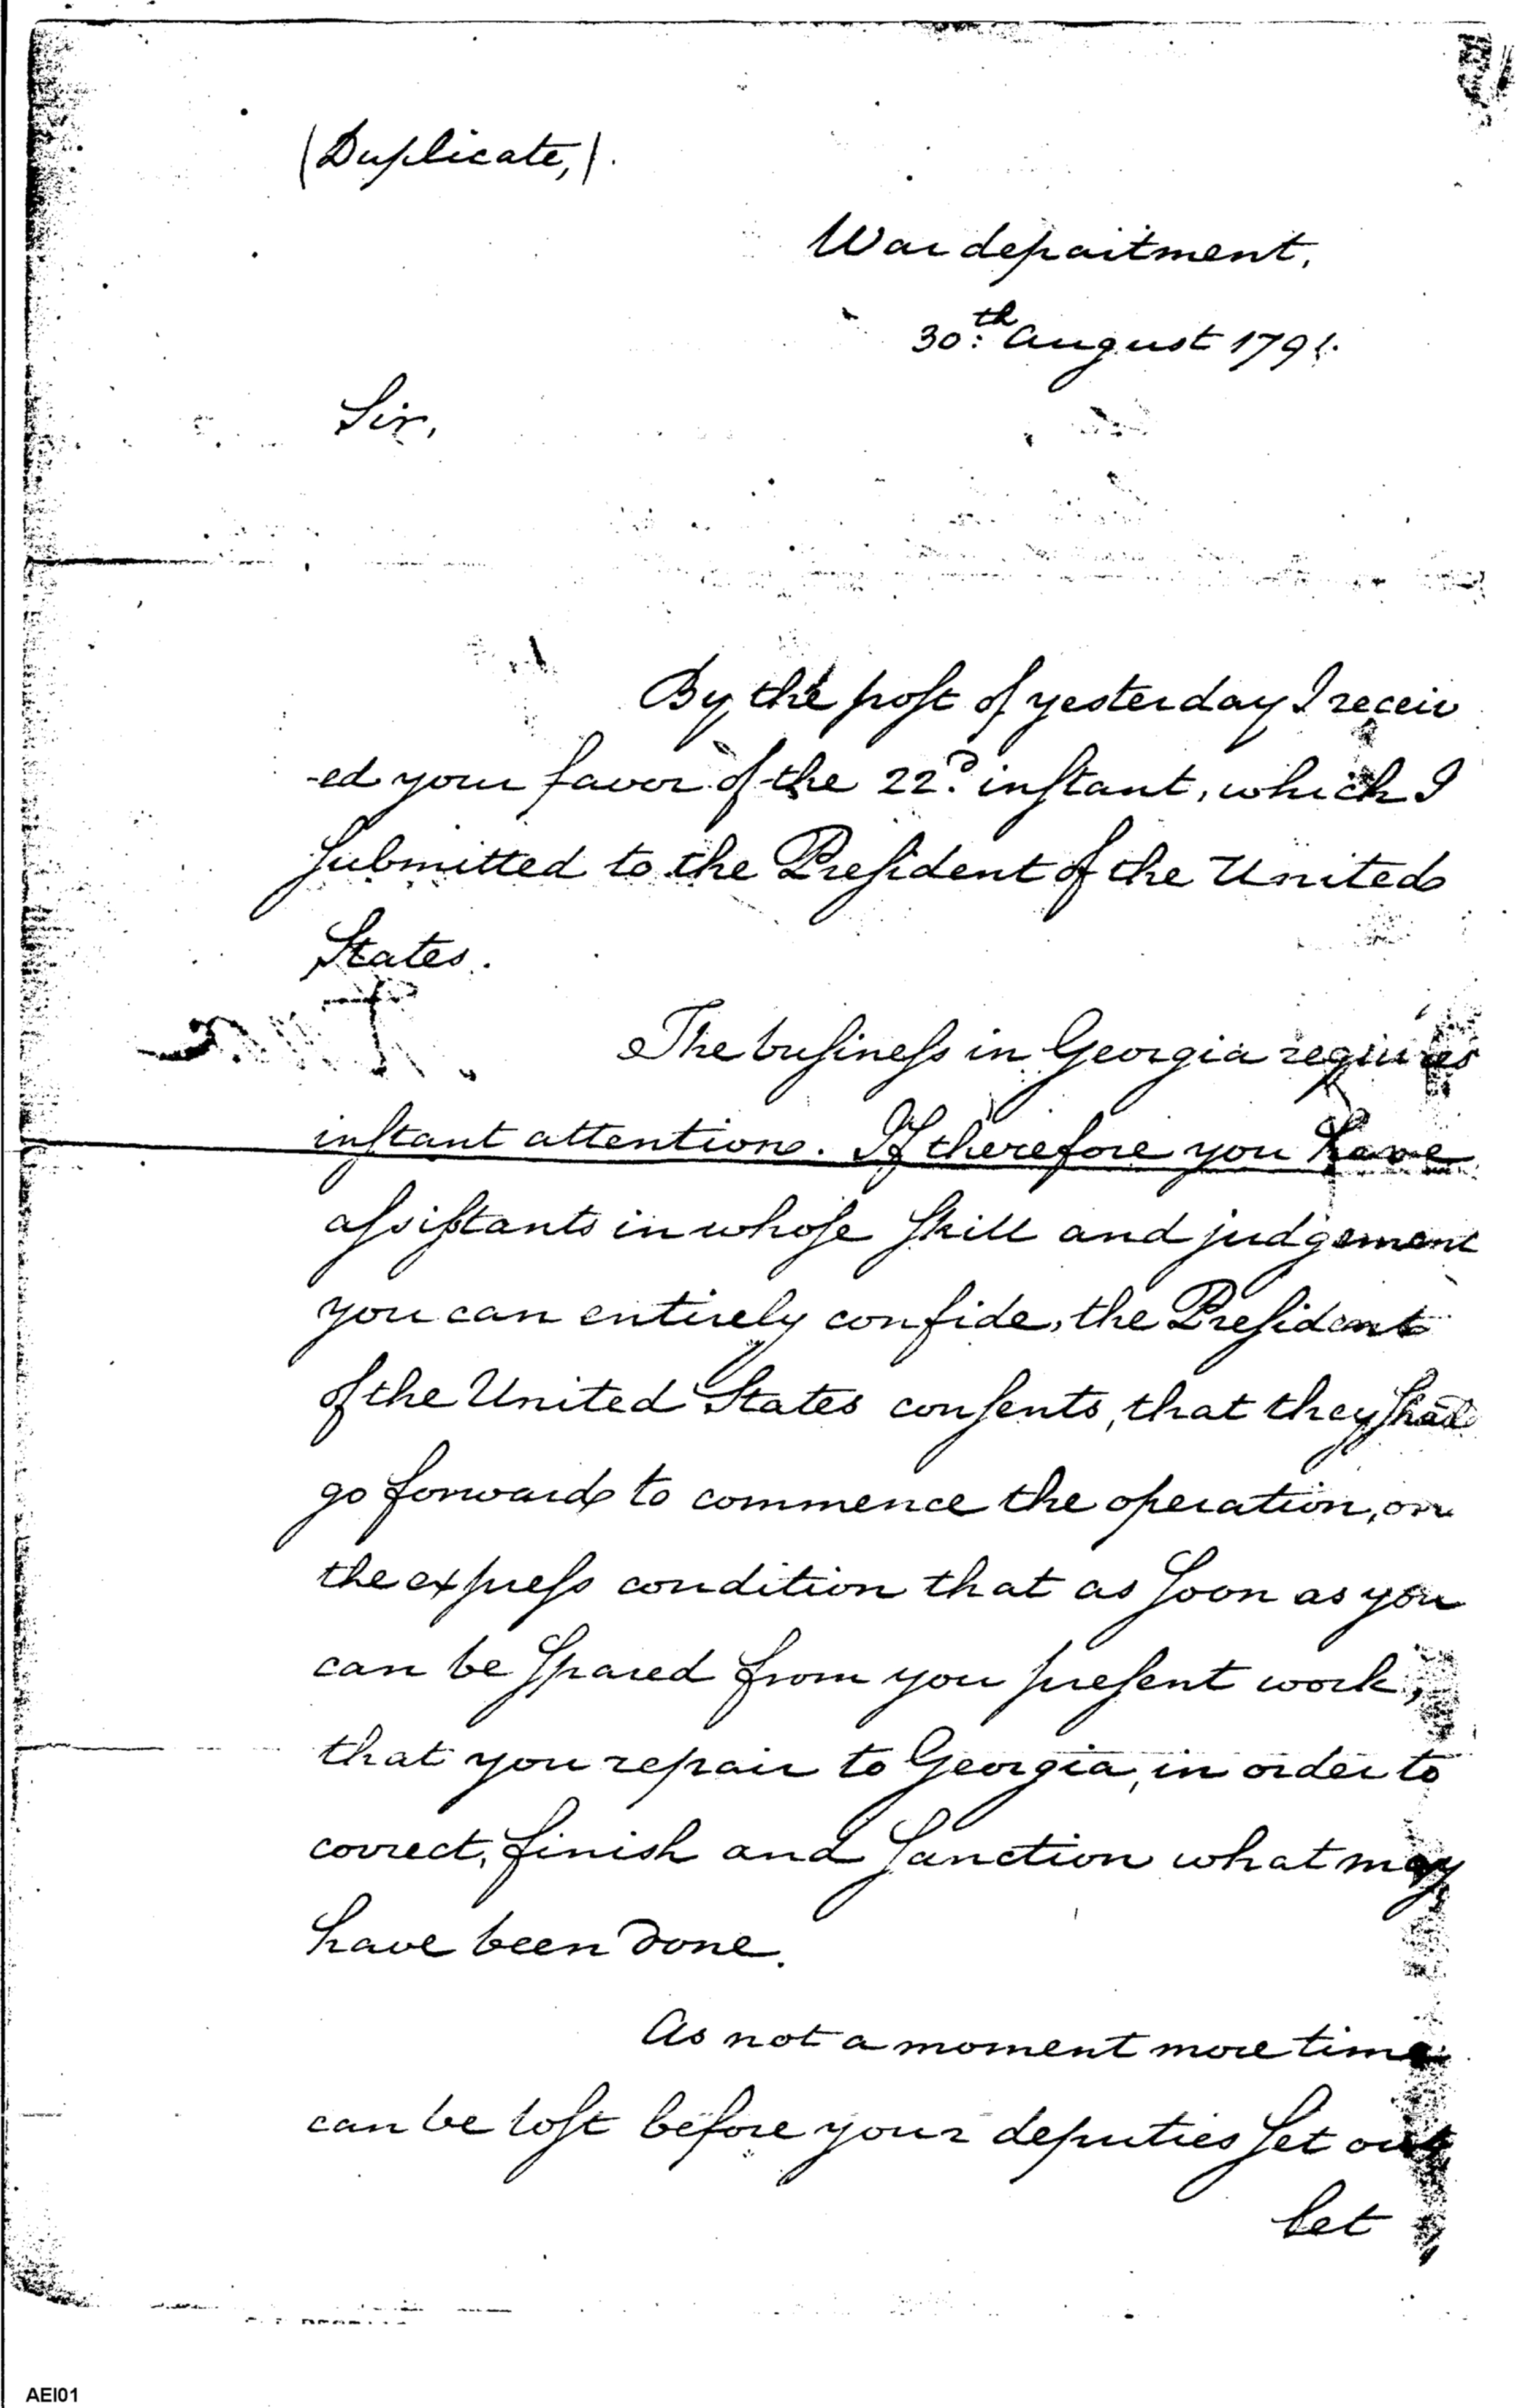 (Duplicate,).
War department,
30th August 1791.
Sir,
By the post of yesterday I receiv
-ed your favor of the 22d instant, which I
submitted to the President of the United
States.
The business in Georgia requires
instant attention. If therefore you have
assistants in whose skill and judgement
you can entirely confide, the President
of the United States consents, that they shall
go forward to commence the operation, on
the express condition that as soon as you
can be spared from you present work,
that you repair to Georgia, in order to
correct, finish and sanction what may
have been done.
As not a moment more time
can be lost before your deputies set out
let
AEI01